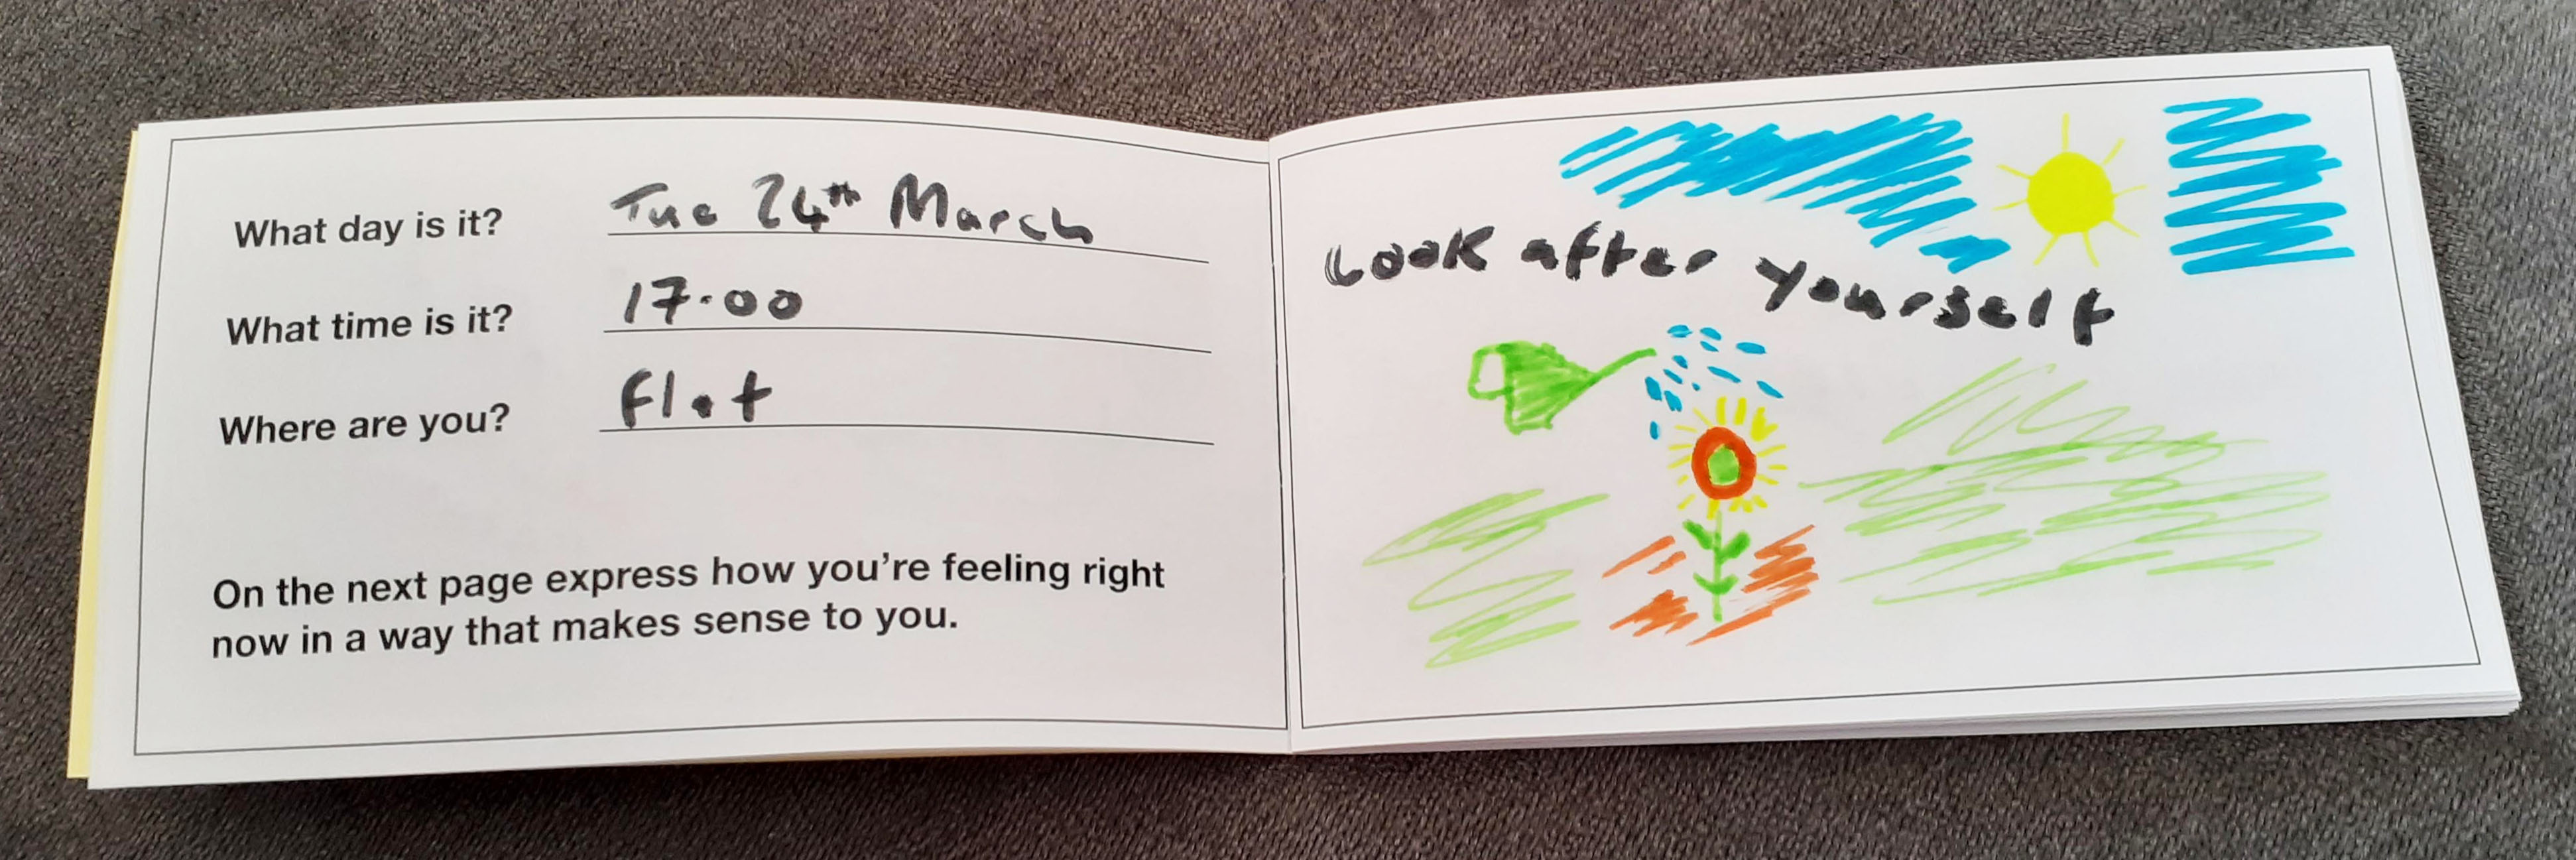 What day is it? Tue 24th March
What time is it? 17.00
Where are you? Flat
On the next page express how you're feeling right
now in a way that makes sense to you.
Look after yourself